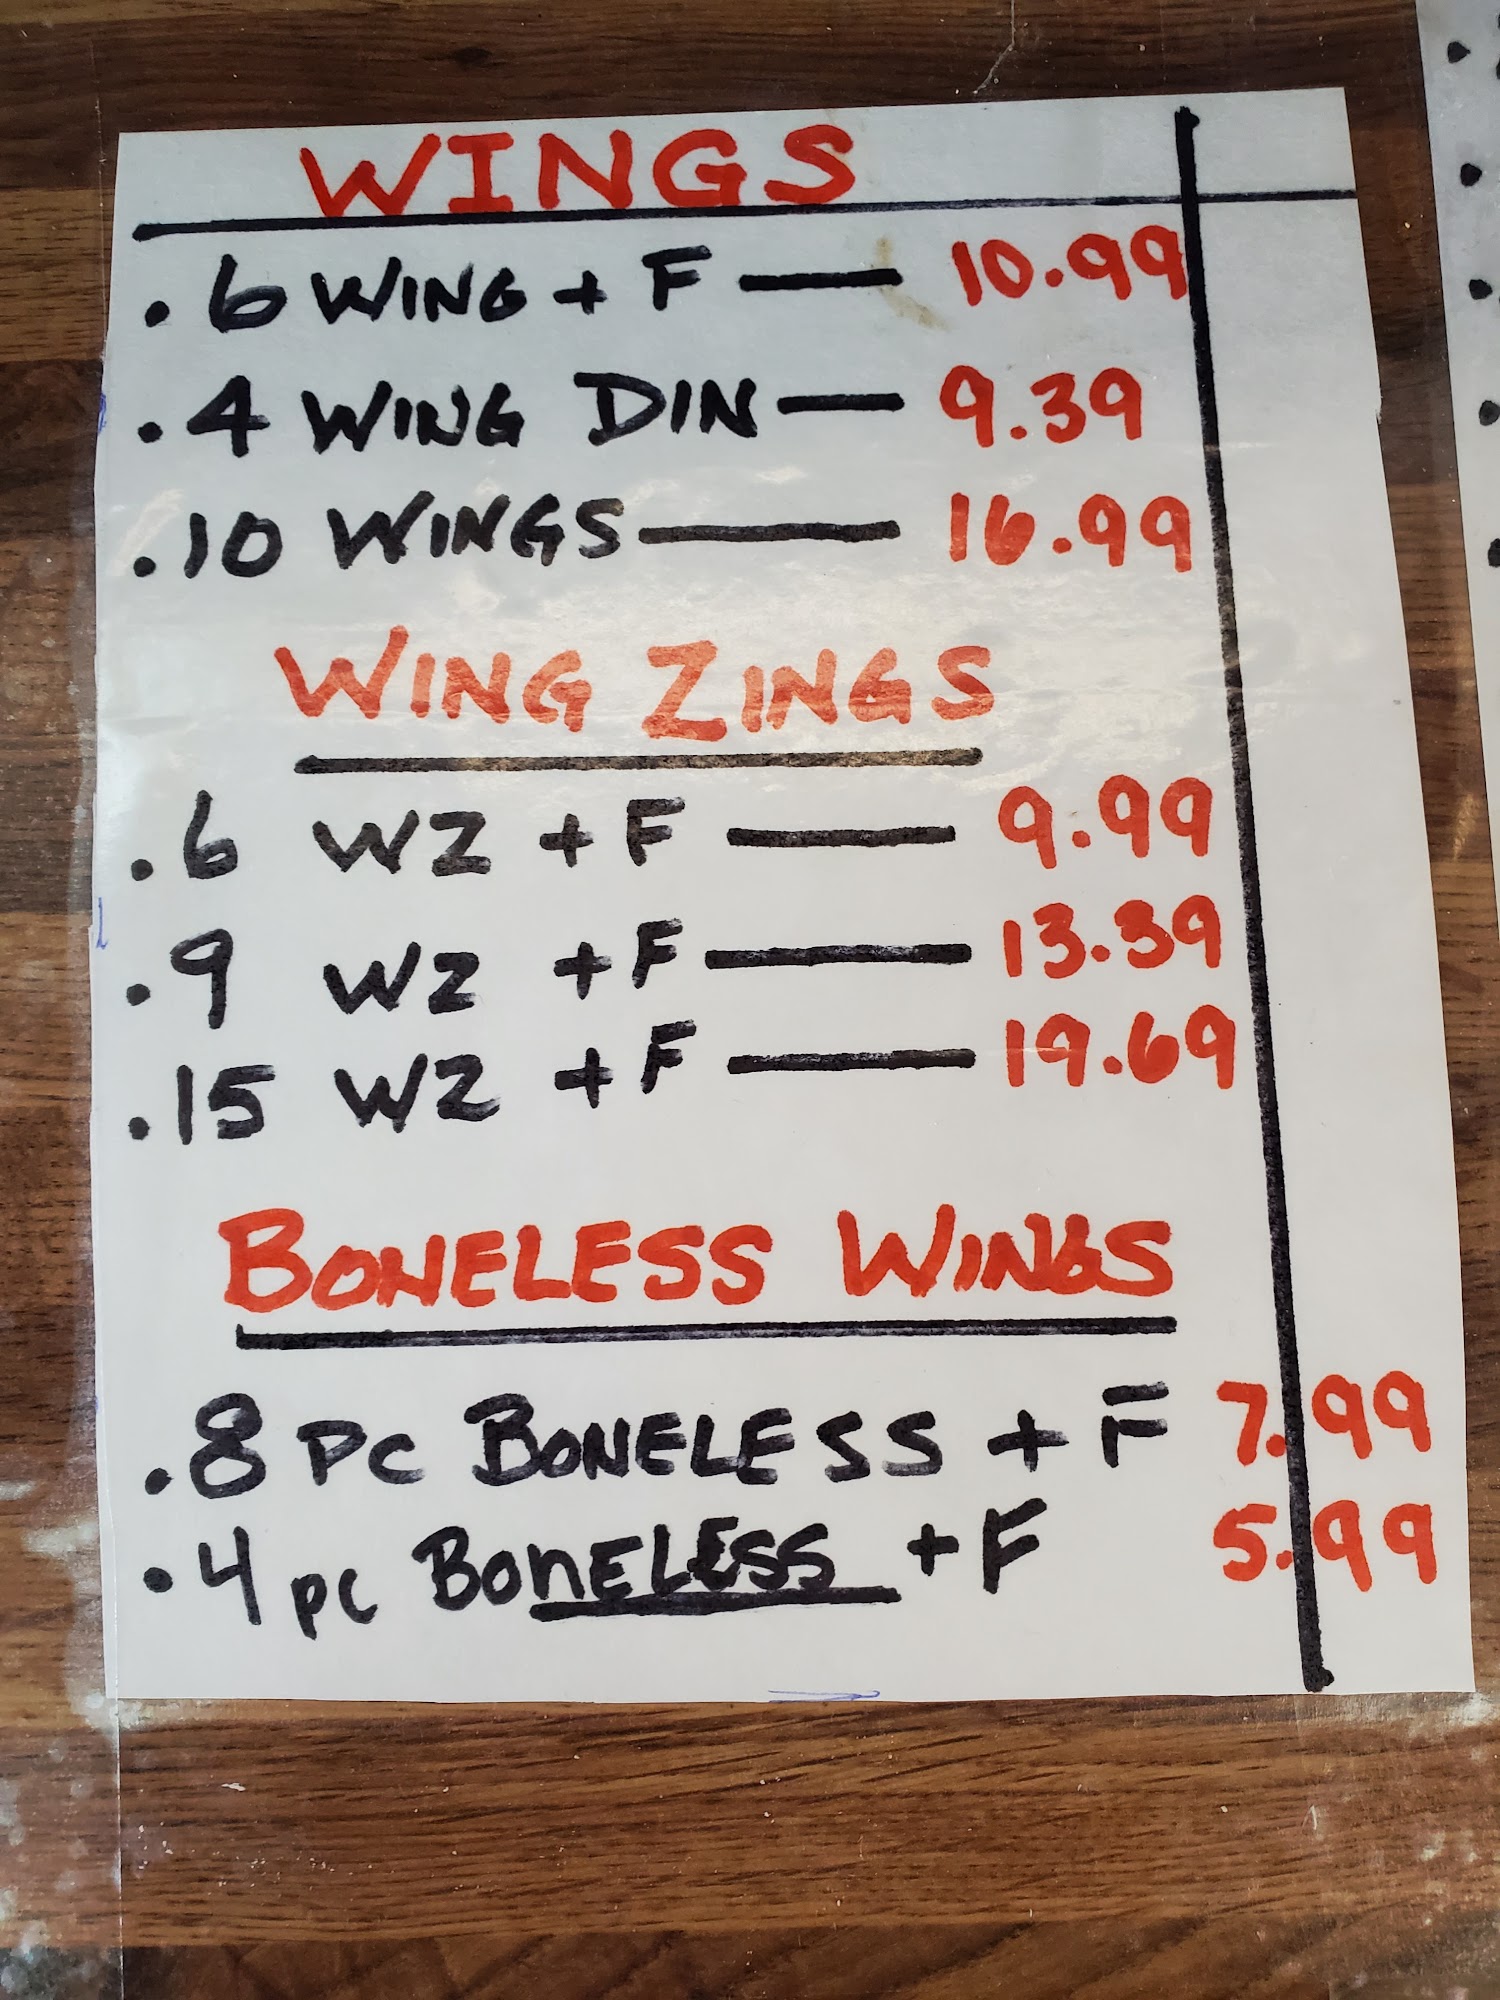 WINGS
. 6 WING + F — 10.99
. 4 WING DIN — 9.39
. 10 WINGS — 16.99
WING ZINGS
. 6 WZ + F — 9.99
. 9 WZ + F — 13.39
. 15 WZ + F — 19.69
BONELESS WINGS
. 8 PC BONELESS + F 7.99
. 4 pc BONELESS + F 5.99